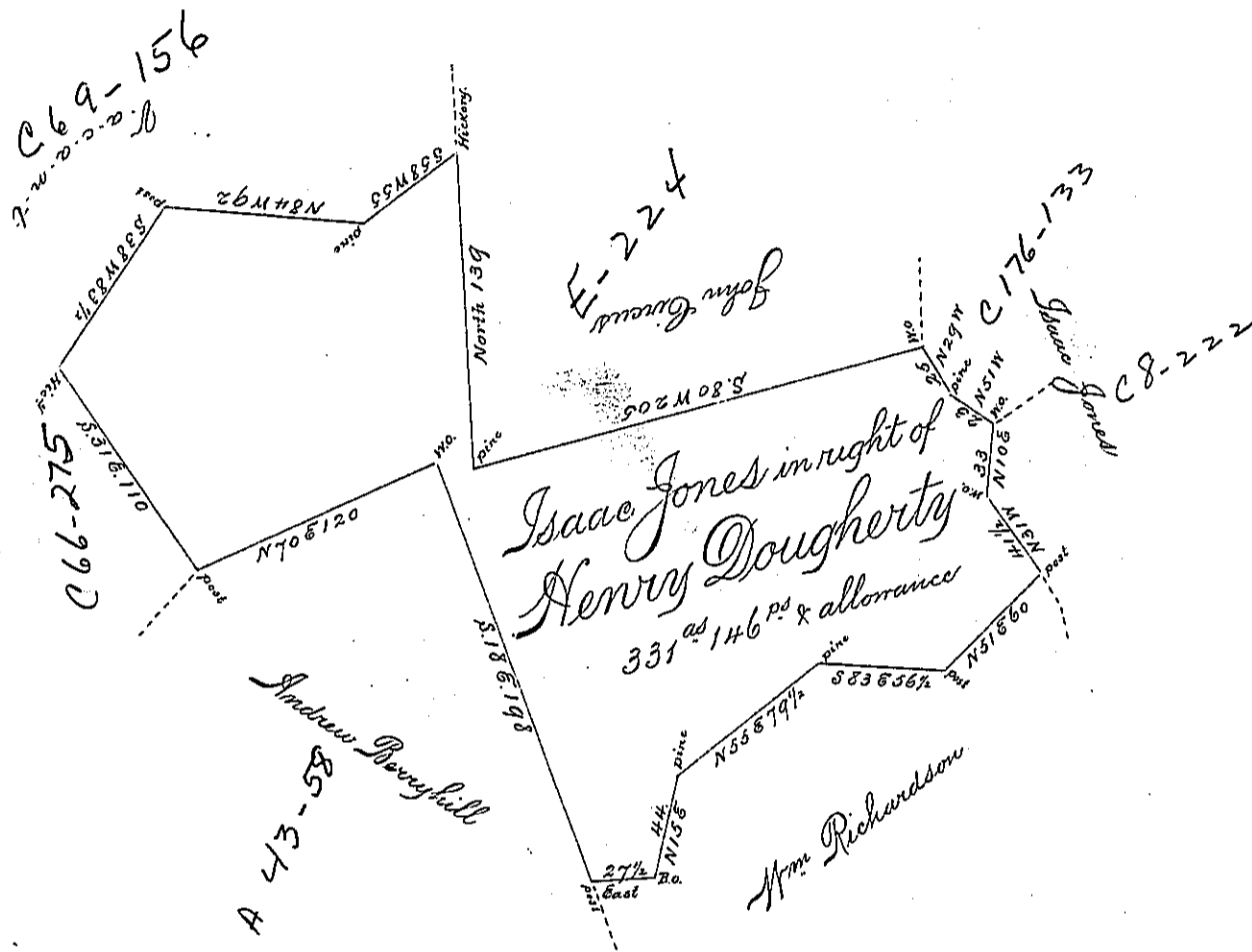 C69-156
V.a.c.a.n.t.
Hickory.
S58W55
N84W92
pine
post
S38W83½
Hicr'y
C66-275
S.31E.110
post
N70E120
W.O.
North 139
pine
E-224
John Circus
S.80W205
W.O
N29W
pine
N51W
W.O.
C176-133
Isaac Jones
C8-222
33
N10E
W.O.
41½
N31W
post
N51E60
post
S83E56½
pine
N55E79½
pine
44
N15E
B.O.
27½
East
post
S.18E.198
Isaac Jones in right of
Henry Dougherty
331 as 146 ps & allowance
Andrew Berryhill
A 43-58
Wm Richardson